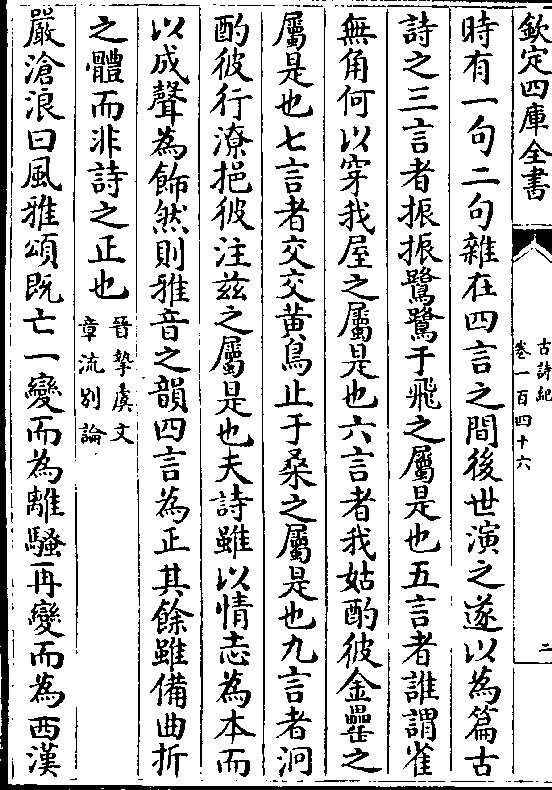 欽定四庫全書
古詩紀
卷一百四十六
二
時有一句二句雜在四言之間後世演之遂以為篇古
詩之三言者振振鷺鷺于飛之屬是也五言者誰謂雀
無角何以穿我屋之屬是也六言者我姑酌彼金罍之
屬是也七言者交交黃鳥止于桑之屬是也九言者泂
酌彼行潦挹彼注兹之屬是也夫詩雖以情志為本而
以成聲為飾然則雅音之韻四言為正其餘雖備曲折
之體而非詩之正也
晉摯虞文
章流别論
嚴滄浪曰風雅頌既亡一變而為離騷再變而為西漢